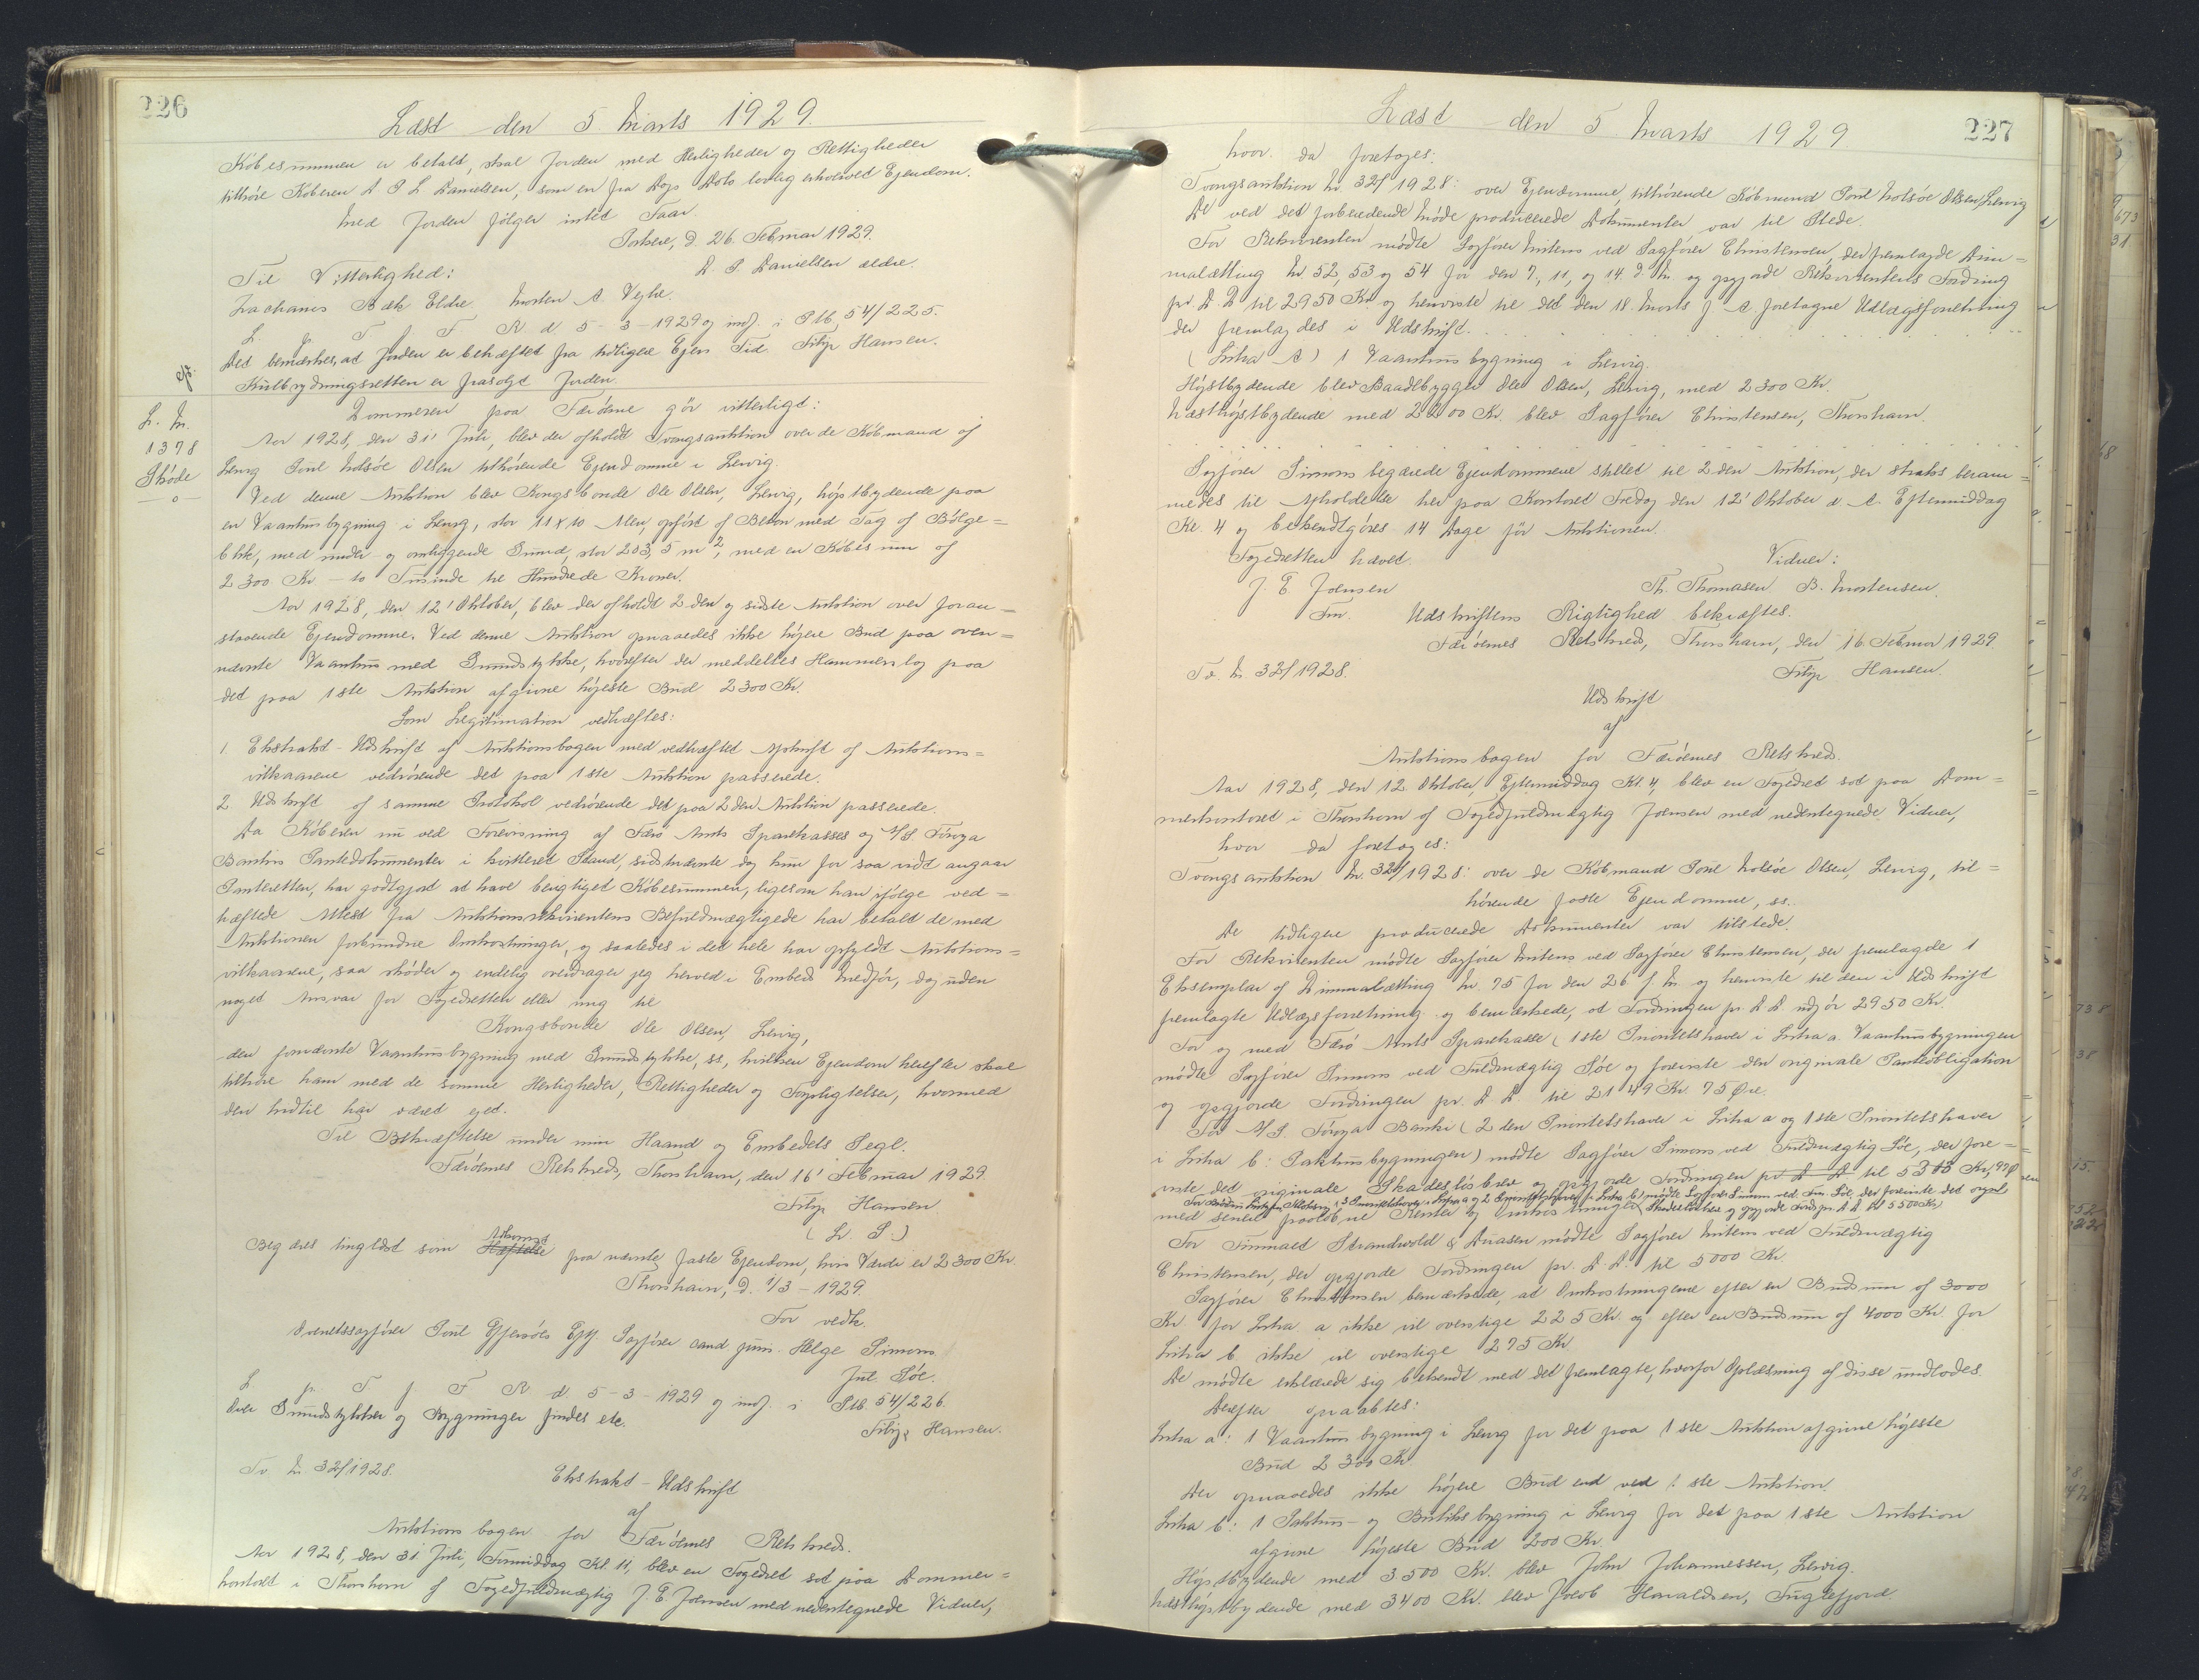 226
Læst den 5 Marts 1929.
Købesummen er betalt, skal Jorden med Herligheder og Rettigheder
tilhøre Køberen D P L Danielsen, som en fra Dags Dato lovlig erhvervet Ejendom.
Med Jorden følger intet Faar.
Porkere, d. 26. Februar 1929.
D. P. Danielsen ældre.
Til Vitterlighed:
Zacharis Bæk Eldre Morten A. Vejhe.
L. p. T. f. F. R. d. 5-3-1929 og indf. i Ptb. 54/225.
Det bemærkes, at Jorden er behæftet fra tidligere Ejers Tid. Filip Hansen.
Kulbrydningsretten er frasolgt Jorden.
L. Nr.
1378
Skøde
-o-
Dommeren paa Færøerne gør vitterligt:
Aar 1928, den 31' Juli, blev der afholdt Tvangsauktion over de Købmand af
Lervig Poul Molsøe Olsen tilhørende Ejendomme i Lervig.
Ved denne Auktion blev Kongsbonde Ole Olsen, Lervig, højstbydende paa
en Vaanhusbygning i Lervig, stor 11 x 10 Alen, opført af Beton med Tag af Bølge=
blik, med under- og omliggende Grund, stor 203,5 m², med en Købesum af
2300 Kr - to Tusinde tre Hundrede Kroner.
Aar 1928, den 12' Oktober, blev der afholdt 2den og sidste Auktion over foran=
staaende Ejendomme. Ved denne Auktion opnaaedes ikke højere Bud paa oven=
nævnte Vaanhus med Grundstykke, hvorefter der meddeltes Hammerslag paa
det paa 1ste Auktion afgivne højeste Bud 2300 Kr.
Som Legitimation vedhæftes:
1. Ekstrakt-Udskrift af Auktionsbogen med vedhæftet Afskrift af Auktions=
vilkaarene vedrørende det paa 1ste Auktion passerede.
2. Udskrift af samme Protokol vedrørende det paa 2den Auktion passerede.
Da Køberen nu ved Forevisning af Færø Amts Sparekasses og A/S. Føroya
Bankis Pantedokumenter i kvitteret Stand, sidstnævnte dog kun for saa vidt angaar
Panteretten, har godtgjort at have berigtiget Købesummen, ligesom han ifølge ved=
hæftede Attest fra Auktionsrekvirentens Befuldmægtigede har betalt de med
Auktionen forbundne Omkostninger, og saaledes i det hele har opfyldt Auktions=
vilkaarene, saa skøder og endelig overdrager jeg herved i Embeds Medfør, dog uden
noget Ansvar for Fogedretten eller mig til
Kongsbonde Ole Olsen, Lervig,
den fornævnte Vaanhusbygning med Grundstykke, ss, hvilken Ejendom herefter skal
tilhøre ham med de samme Herligheder, Rettigheder og Forpligtelser, hvormed
den hidtil har været ejet.
Til Bekræftelse under min Haand og Embedets Segl.
Færøernes Retskreds, Thorshavn, den 16' Februar 1929.
Filip Hansen
(L. S.)
Begæres tinglæst som Adkomst paa nævnte faste Ejendom, hvis Værdi er 2300 Kr.
Thorshavn, d. 1/3-1929.
For vedk.
Overretssagfører Poul Gjessøes Eftf. Sagfører cand. juris. Helge Simons
Jul. Søe.
L. p. T. f. F. R. d. 5-3-1929 og indf. i Ptb. 54/226.
Over Grundstykker og Bygninger findes etc.
Filip Hansen.
Tv. Nr. 32/1928.
Ekstrakt-Udskrift
af
Auktionsbogen for Færøernes Retskreds.
Aar 1928, den 31 Juli, Formiddag Kl. 11, blev en Fogedret sat paa Dommer=
kontoret i Thorshavn af Fogedfuldmægtig J. E. Joensen med nedentegnede Vidner,
227
Læst den 5 Marts 1929
hvor da foretoges:
Tvangsauktion Nr. 32/1928: over Ejendomme, tilhørende Købmand Poul Molsøe Olsen, Lervig
De ved det forberedende Møde producerede Dokumenter var til Stede.
For Rekvirenten mødte Sagfører Mitens ved Sagfører Christensen, der fremlagde Dim=
malætting Nr. 52, 53 og 54 for den 7, 11, og 14. d. M. og opgjorde Rekvirentens Fordring
pr. D. D. til 2950 Kr. og henviste til det den 18. Marts f. A. foretagne Udlægsforretning
der fremlagdes i Udskrift.
(Litra A) 1 Vaanhusbygning i Lervig.
Højstbydende blev Baadebygger Ole Olsen, Lervig, med 2300 Kr.
Næsthøjstbydende med 2200 Kr. blev Sagfører Christensen, Thorshavn.
Sagfører Simons begærede Ejendommene stillet til 2den Auktion, der straks beram=
medes til Afholdelse her paa Kontoret Fredag den 12' Oktober d. A. Eftermiddag
Kl. 4 og bekendtgøres 14 Dage før Auktionen.
Fogedretten hævet.
Vidner:
J. E. Joensen
Th. Thomasen B. Mortensen.
Fm.
Udskriftens Rigtighed bekræftes.
Færøernes Retskreds, Thorshavn, den 16 Februar 1929.
Tv. Nr. 32/1928.
Filip Hansen.
Udskrift
af
Auktionsbogen for Færøernes Retskreds.
Aar 1928, den 12 Oktober, Eftermiddag Kl. 4, blev en Fogedret sat paa Dom=
merkontoret i Thorshavn af Fogedfuldmægtig Joensen med nedentegnede Vidner,
hvor da foretoges:
Tvangsauktion Nr. 32/1928: over de Købmand Poul Molsøe Olsen, Lervig, til=
hørende faste Ejendomme, ss.
De tidligere producerede Dokumenter var tilstede.
For Rekvirenten mødte Sagfører Mitens ved Sagfører Christensen, der fremlagde 1
Eksemplar af Dimmalætting Nr. 75 for den 26 f. M. og henviste til den i Udskrift
fremlagte Udlægsforretning og bemærkede, at Fordringen pr. D. D. udgør 2950 Kr.
For og med Færø Amts Sparekasse (1ste Prioritetshaver i Litra a. Vaanhusbygningen
mødte Sagfører Simons ved Fuldmægtig Søe og foreviste den originale Panteobligation
og opgjorde Fordringen pr. D. D. til 2149 Kr. 75 Øre.
For A/S. Føroya Banki (2den Prioritetshaver i Litra a og 1ste Prioritetshaver
i Litra b: Pakhusbygningen) mødte Sagfører Simons ved Fuldmægtig Søe, der fore=
viste det originale Skadesløsbrev og opgjorde Fordringen pr. D. D. til 5313 Kr, 97 Ø
med senere paaløbne Renter og Omkostninger
For Simmald Strandvold & Duasen mødte Sagfører Mitens ved Fuldmægtig
Christensen, der opgjorde Fordringen pr. D. D. til 5000 Kr.
Sagfører Christensen bemærkede, at Omkostningerne efter en Budsum af 3000
Kr. for Litra a ikke vil overstige 225 Kr. og efter en Budsum af 4000 Kr. for
Litra b ikke vil overstige 275 Kr.
De mødte erklærede sig bekendt med det fremlagte, hvorfor Oplæsning af disse undlodes.
Derefter opraabtes:
Litra a: 1 Vaanhusbygning i Lervig for det paa 1ste Auktion afgivne højeste
Bud 2300 Kr.
Der opnaaedes ikke højere Bud end ved 1ste Auktion.
Litra b: 1 Pakhus- og Butiksbygning i Lervig for det paa 1ste Auktion
afgivne højeste Bud 200 Kr.
Højstbydende med 3500 Kr. blev John Johannessen, Lervig.
Næsthøjstbydende med 3400 Kr. blev Jacob Haraldsen, Fuglefjord.